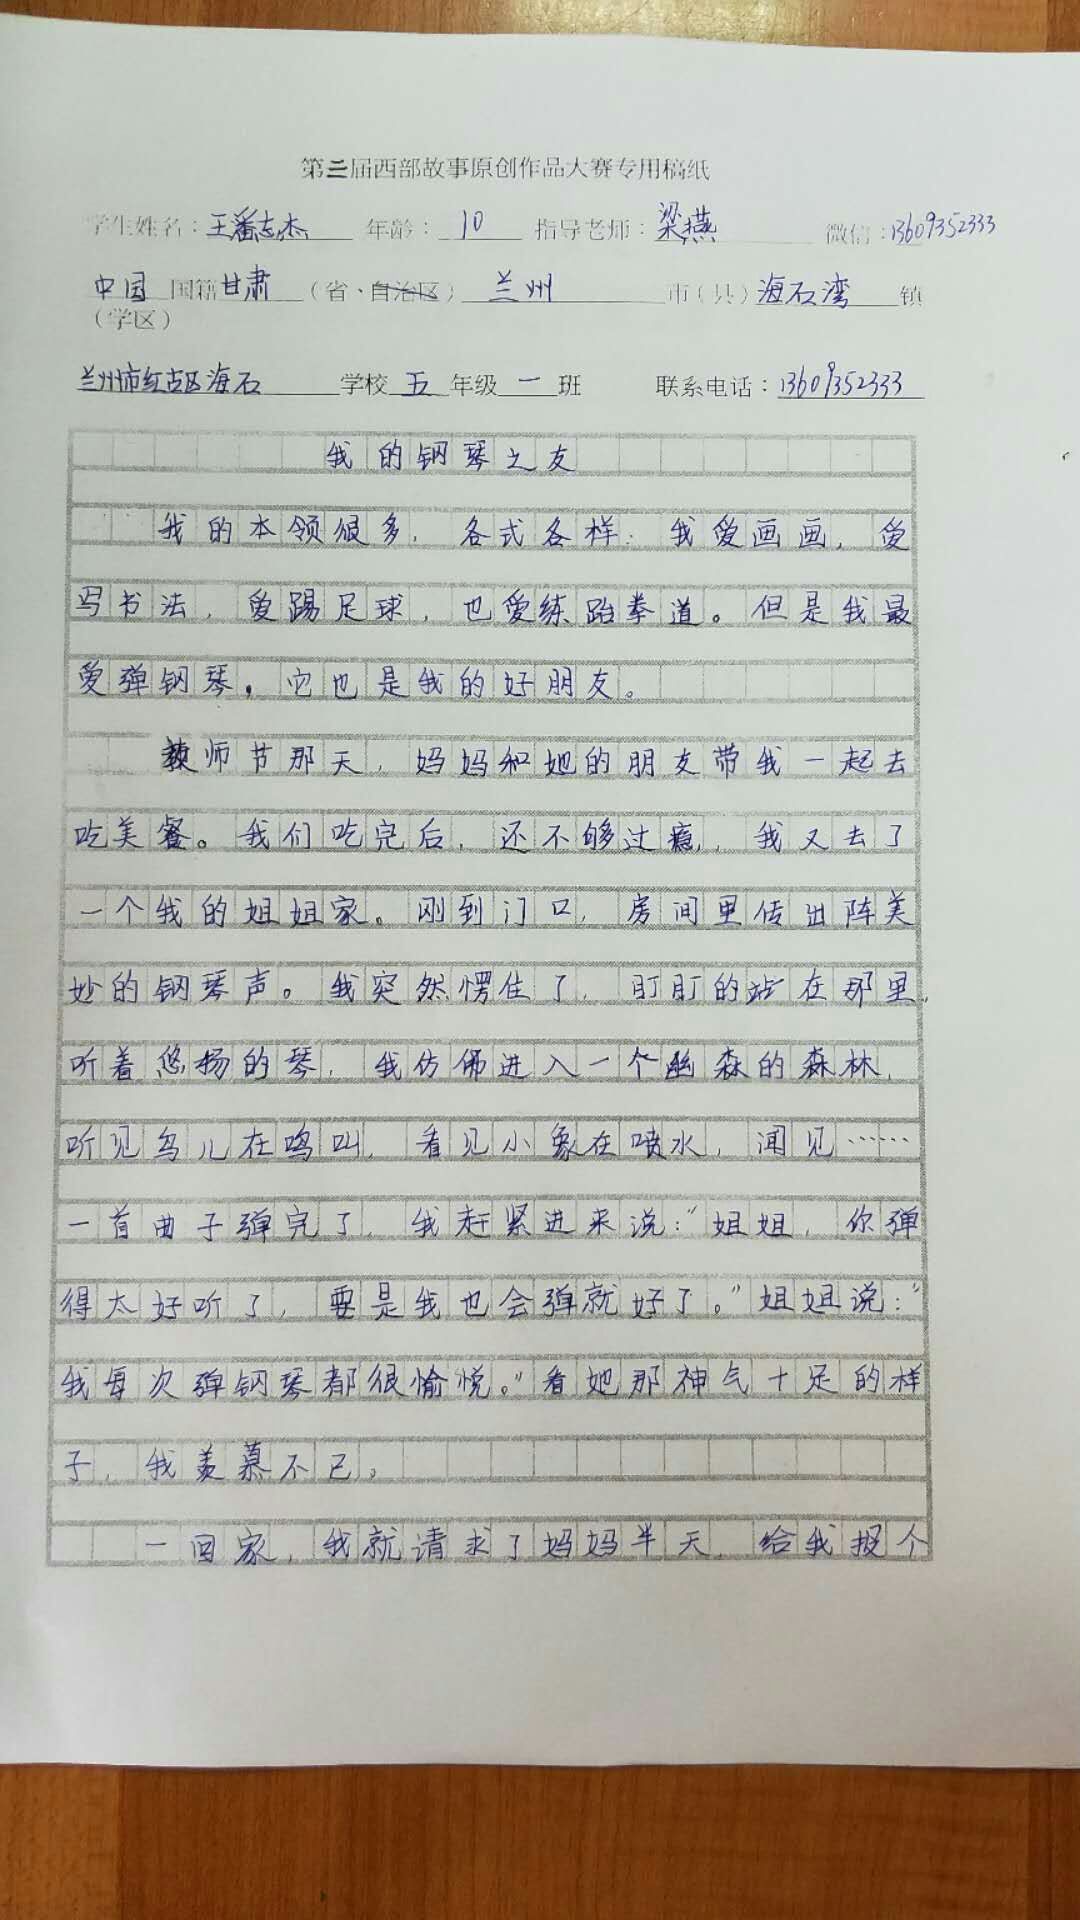 第三届西部故事原创作品大赛专用稿纸
学生姓名：王潘志杰 年龄：10 指导老师：梁燕 微信：13609352333
中国 国籍 甘肃（省、自治区）兰州 市（县）海石湾 镇
（学区）
兰州市红古区海石 学校 五 年级 一 班 联系电话：13609352333
我的钢琴之友
我的本领很多，各式各样：我爱画画，爱
写书法，爱踢足球，也爱练跆拳道。但是我最
爱弹钢琴，它也是我的好朋友。
教师节那天，妈妈和她的朋友带我一起去
吃美餐。我们吃完后，还不够过瘾，我又去了
一个我的姐姐家。刚到门口，房间里传出阵美
妙的钢琴声。我突然愣住了，盯盯的站在那里，
听着悠扬的琴，我仿佛进入一个幽森的森林，
听见鸟儿在鸣叫，看见小象在喷水，闻见……
一首曲子弹完了，我赶紧进来说：“姐姐，你弹
得太好听了，要是我也会弹就好了。”姐姐说：“
我每次弹钢琴都很愉悦。”看她那神气十足的样
子，我羡慕不已。
一回家，我就请求了妈妈半天，给我报个